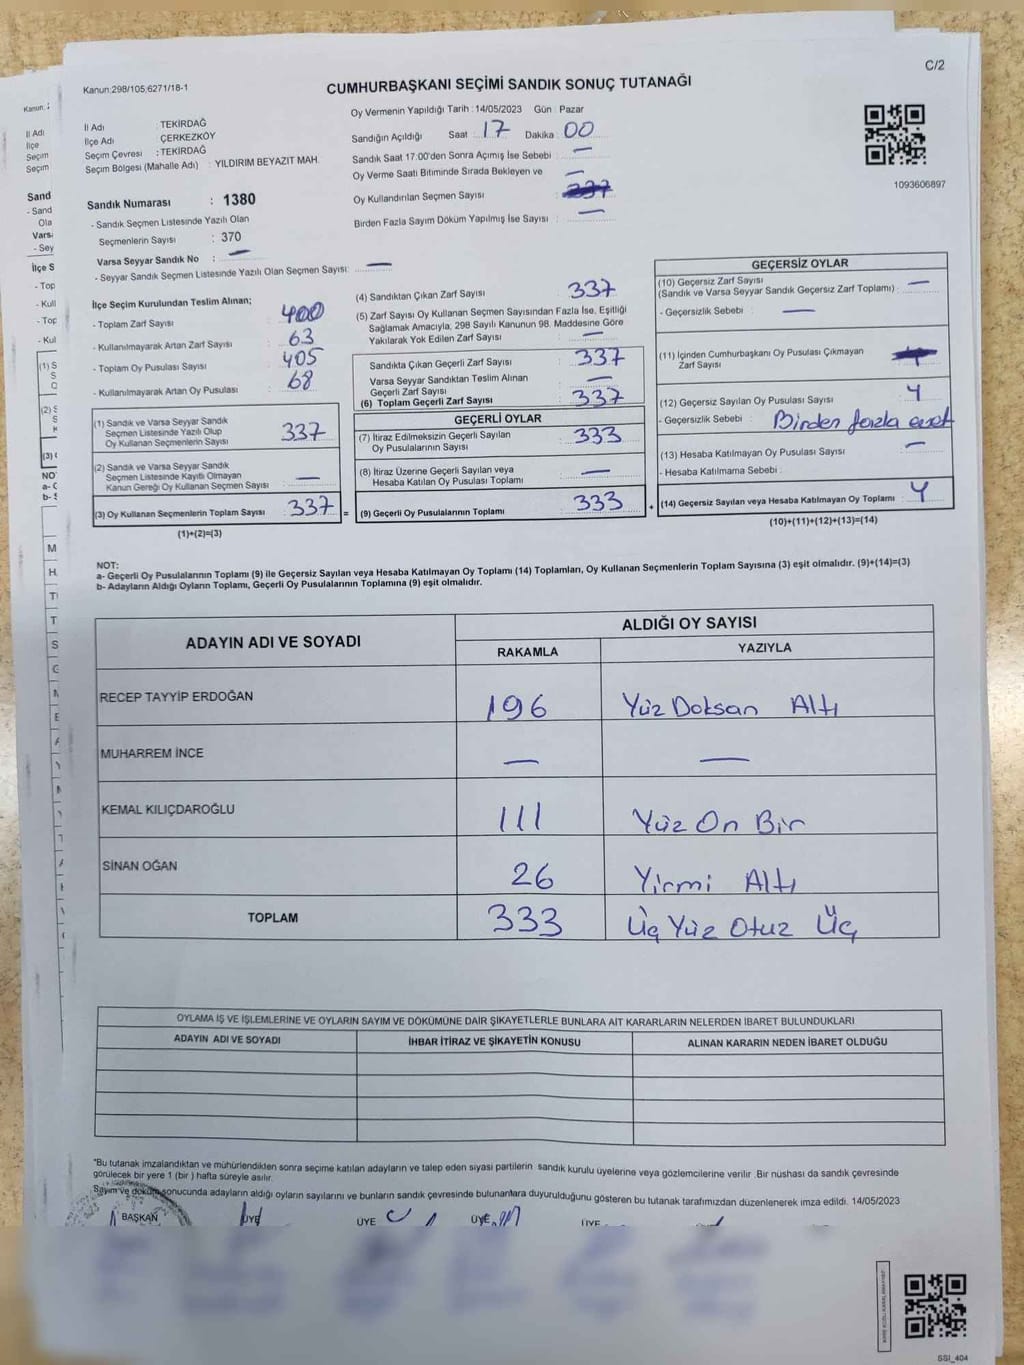 C/2
Kanun:298/105;6271/18-1
CUMHURBAŞKANI SEÇİMİ SANDIK SONUÇ TUTANAĞI
İl Adı : TEKİRDAĞ
İlçe Adı : ÇERKEZKÖY
Seçim Çevresi : TEKİRDAĞ
Seçim Bölgesi (Mahalle Adı) : YILDIRIM BEYAZIT MAH.
Sandık Numarası : 1380
- Sandık Seçmen Listesinde Yazılı Olan
Seçmenlerin Sayısı : 370
Varsa Seyyar Sandık No : —
- Seyyar Sandık Seçmen Listesinde Yazılı Olan Seçmen Sayısı: —
Oy Vermenin Yapıldığı Tarih : 14/05/2023 Gün : Pazar
Sandığın Açıldığı Saat : 17 Dakika : 00
Sandık Saat 17:00'den Sonra Açımış İse Sebebi : —
Oy Verme Saati Bitiminde Sırada Bekleyen ve
Oy Kullandırılan Seçmen Sayısı : —
Birden Fazla Sayım Döküm Yapılmış İse Sayısı : —
1093606897
İlçe Seçim Kurulundan Teslim Alınan;
- Toplam Zarf Sayısı : 400
- Kullanılmayarak Artan Zarf Sayısı : 63
- Toplam Oy Pusulası Sayısı : 405
- Kullanılmayarak Artan Oy Pusulası : 68
(1) Sandık ve Varsa Seyyar Sandık
Seçmen Listesinde Yazılı Olup
Oy Kullanan Seçmenlerin Sayısı : 337
(2) Sandık ve Varsa Seyyar Sandık
Seçmen Listesinde Kayıtlı Olmayan
Kanun Gereği Oy Kullanan Seçmen Sayısı : —
(3) Oy Kullanan Seçmenlerin Toplam Sayısı : 337 =
(1)+(2)=(3)
(4) Sandıktan Çıkan Zarf Sayısı : 337
(5) Zarf Sayısı Oy Kullanan Seçmen Sayısından Fazla İse, Eşitliği
Sağlamak Amacıyla, 298 Sayılı Kanunun 98. Maddesine Göre
Yakılarak Yok Edilen Zarf Sayısı : —
Sandıkta Çıkan Geçerli Zarf Sayısı : 337
Varsa Seyyar Sandıktan Teslim Alınan
Geçerli Zarf Sayısı : —
(6) Toplam Geçerli Zarf Sayısı : 337
GEÇERLİ OYLAR
(7) İtiraz Edilmeksizin Geçerli Sayılan
Oy Pusulalarının Sayısı : 333
(8) İtiraz Üzerine Geçerli Sayılan veya
Hesaba Katılan Oy Pusulası Toplamı : —
(9) Geçerli Oy Pusulalarının Toplamı : 333 +
GEÇERSİZ OYLAR
(10) Geçersiz Zarf Sayısı
(Sandık ve Varsa Seyyar Sandık Geçersiz Zarf Toplamı) : —
- Geçersizlik Sebebi : —
(11) İçinden Cumhurbaşkanı Oy Pusulası Çıkmayan
Zarf Sayısı
(12) Geçersiz Sayılan Oy Pusulası Sayısı : 4
- Geçersizlik Sebebi : Birden fazla evet
(13) Hesaba Katılmayan Oy Pusulası Sayısı : —
- Hesaba Katılmama Sebebi :
(14) Geçersiz Sayılan veya Hesaba Katılmayan Oy Toplamı : 4
(10)+(11)+(12)+(13)=(14)
NOT:
a- Geçerli Oy Pusulalarının Toplamı (9) ile Geçersiz Sayılan veya Hesaba Katılmayan Oy Toplamı (14) Toplamları, Oy Kullanan Seçmenlerin Toplam Sayısına (3) eşit olmalıdır. (9)+(14)=(3)
b- Adayların Aldığı Oyların Toplamı, Geçerli Oy Pusulalarının Toplamına (9) eşit olmalıdır.
ADAYIN ADI VE SOYADI
ALDIĞI OY SAYISI
RAKAMLA YAZIYLA
RECEP TAYYİP ERDOĞAN 196 Yüz Doksan Altı
MUHARREM İNCE — —
KEMAL KILIÇDAROĞLU 111 Yüz On Bir
SİNAN OĞAN 26 Yirmi Altı
TOPLAM 333 Üç Yüz Otuz Üç
OYLAMA İŞ VE İŞLEMLERİNE VE OYLARIN SAYIM VE DÖKÜMÜNE DAİR ŞİKAYETLERLE BUNLARA AİT KARARLARIN NELERDEN İBARET BULUNDUKLARI
ADAYIN ADI VE SOYADI İHBAR İTİRAZ VE ŞİKAYETİN KONUSU ALINAN KARARIN NEDEN İBARET OLDUĞU
*Bu tutanak imzalandıktan ve mühürlendikten sonra seçime katılan adayların ve talep eden siyasi partilerin sandık kurulu üyelerine veya gözlemcilerine verilir. Bir nüshası da sandık çevresinde
görülecek bir yere 1 (bir ) hafta süreyle asılır.
Sayım ve döküm sonucunda adayların aldığı oyların sayılarını ve bunların sandık çevresinde bulunanlara duyurulduğunu gösteren bu tutanak tarafımızdan düzenlenerek imza edildi. 14/05/2023
BAŞKAN ÜYE ÜYE ÜYE ÜYE
SSI_404